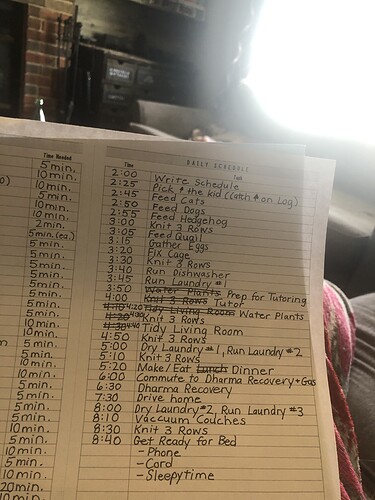 Time Needed
5 min.
10 min.
10 min.
5 min.
10 min.
10 min.
2 min.
5 min. (ea.)
5 min.
10 min.
5 min.
5 min.
5 min.
5 min.
10 min.
10 min.
5 min.
10 min.
5 min.
5 min.
5 min.
10 min.
5 min.
10 min.
5 min.
20 min.
10 min.
DAILY SCHEDULE
Time Task
2:00 Write Schedule
2:25 Pick ↑ the kid (Catch ↑ on Log)
2:45 Feed Cats
2:50 Feed Dogs
2:55 Feed Hedgehog
3:00 Knit 3 Rows
3:05 Feed Quail
3:15 Gather Eggs
3:20 Fix Cage
3:30 Knit 3 Rows
3:40 Run Dishwasher
3:45 Run Laundry #1
3:50 Water Plants Prep for Tutoring
4:00 Knit 3 Rows Tutor
4:10 4:20 Tidy Living Room Water Plants
4:20 4:30 Knit 3 Rows
4:30 4:40 Tidy Living Room
4:50 Knit 3 Rows
5:00 Dry Laundry #1, Run Laundry #2
5:10 Knit 3 Rows
5:20 Make/Eat Lunch Dinner
6:00 Commute to Dharma Recovery + Gas
6:30 Dharma Recovery
7:30 Drive home
8:00 Dry Laundry #2, Run Laundry #3
8:10 Vaccuum Couches
8:30 Knit 3 Rows
8:40 Get Ready for Bed
- Phone
- Cord
- Sleepytime